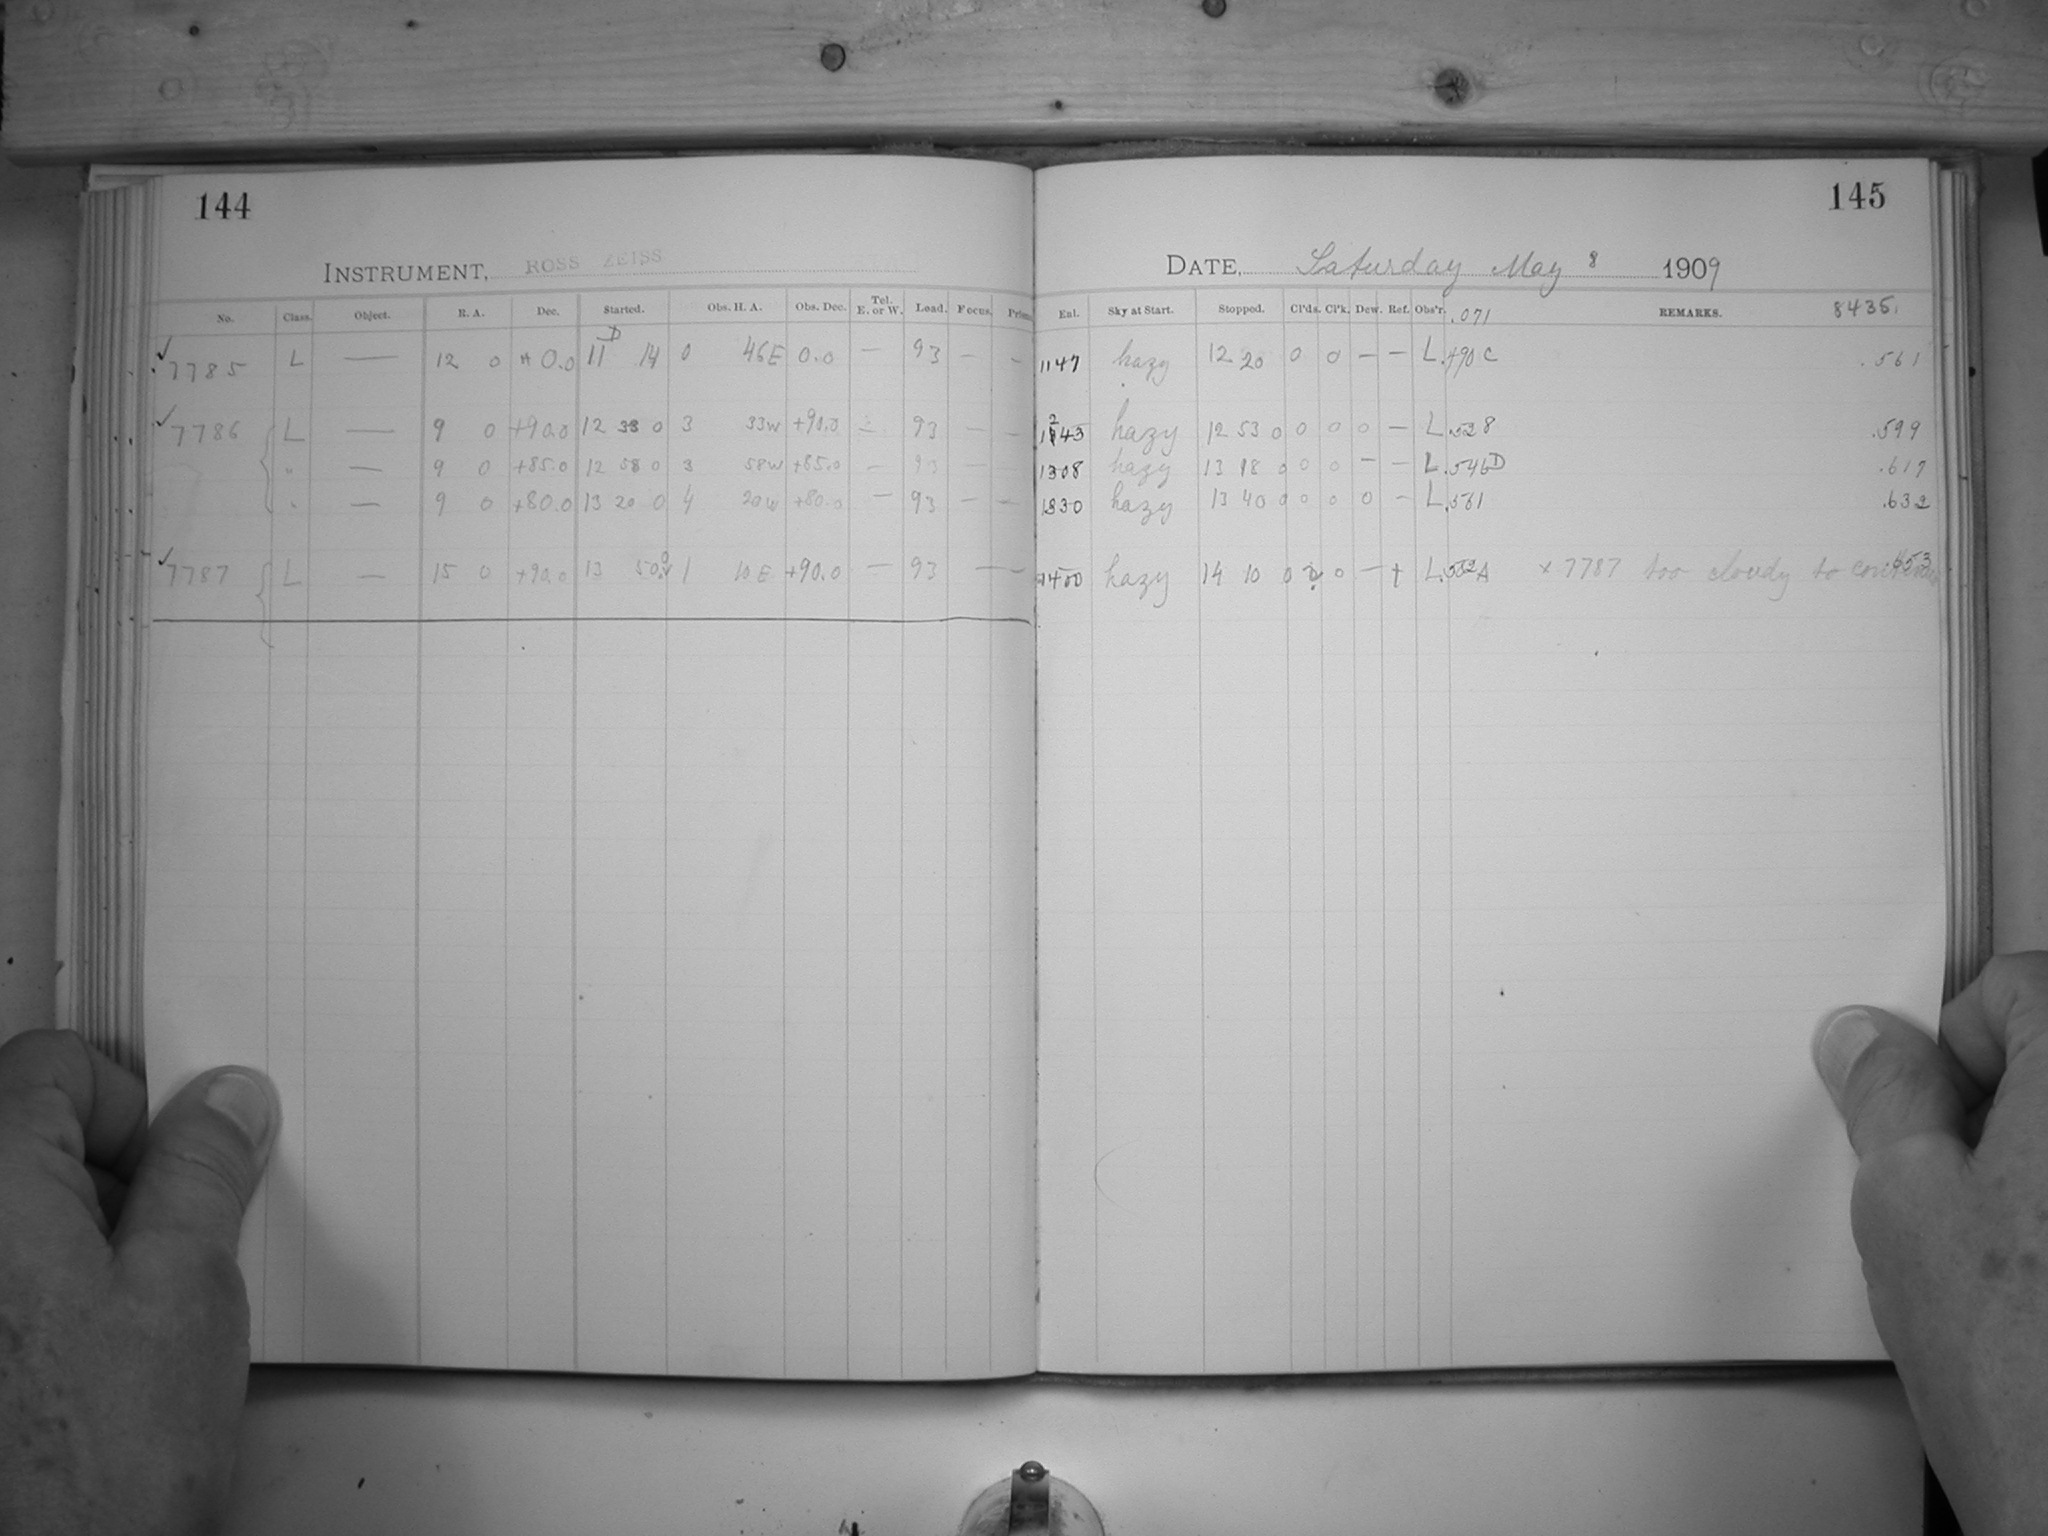 144
INSTRUMENT, ROSS ZEISS
No. Class. Object. R. A. Dec. Started. Obs. H. A. Obs. Dec. Tel. E. or W. Load. Focus.
7785 L — 12 0 0.0 11 14 0 46E 0.0 — 93 — —
7786 L — 9 0 +90.0 12 33 0 3 33W +90.0 — 93 — —
" — 9 0 +85.0 12 58 0 3 58W +85.0 — 93 — —
" — 9 0 +80.0 13 20 0 4 20W +80.0 — 93 — —
7787 L — 15 0 +90.0 13 50 1 10E +90.0 — 93 — —
145
DATE, Saturday May 8 1909
Sky at Start. Stopped. Cl'ds. Cl'k. Dew. Ref. Obs'r. .071 REMARKS. 8435.
1147 hazy 12 20 0 0 — — L .490 C .561
1243 hazy 12 53 0 0 0 0 — L .528 .599
1308 hazy 13 18 0 0 0 — — L .546D .617
1330 hazy 13 40 0 0 0 0 — L .561 .632
1400 hazy 14 10 0 0 — + L .582A x 7787 too cloudy to continue .653